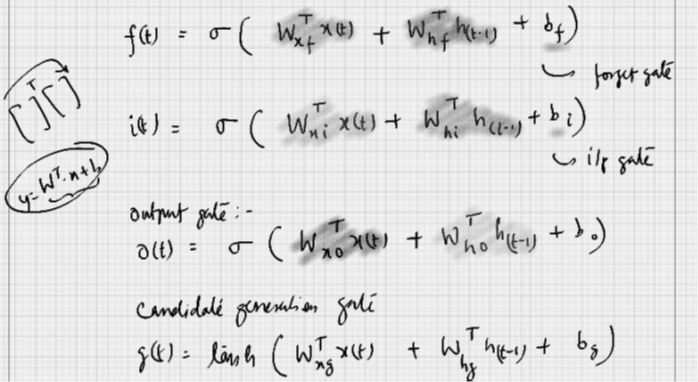 f(t) = σ ( W_xf^T x(t) + W_hf^T h(t-1) + b_f )
forget gate
[ ]^T [ ]
i(t) = σ ( W_xi^T x(t) + W_hi^T h(t-1) + b_i )
i/p gate
y = W^T·x+b
output gate :-
o(t) = σ ( W_xo^T x(t) + W_ho^T h(t-1) + b_o )
Candidate generation gate
g(t) = tanh ( W_xg^T x(t) + W_hg^T h(t-1) + b_g )